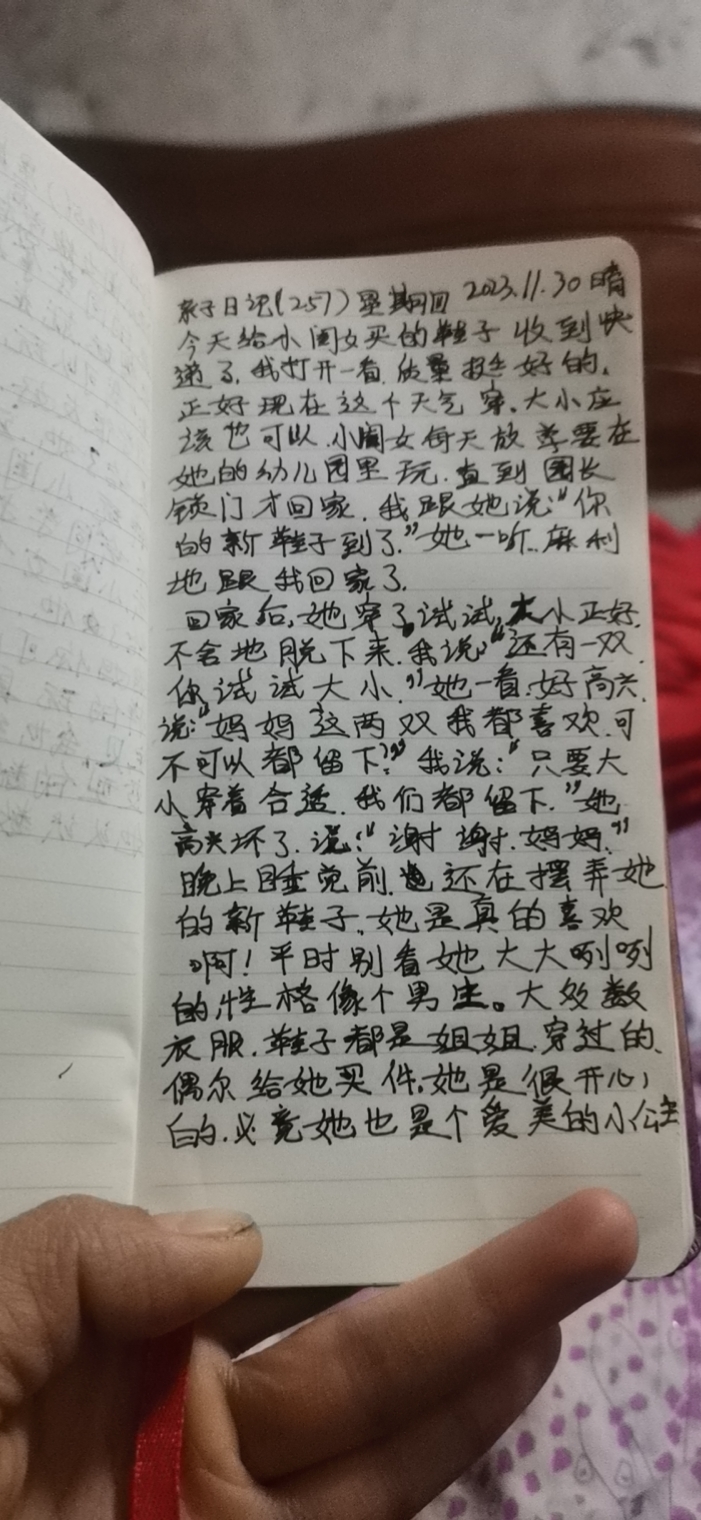 亲子日记(257)星期四 2023.11.30晴
今天给小闺女买的鞋子收到快
递了.我打开一看.质量挺好的.
正好现在这个天气穿.大小应
该也可以.小闺女每天放学要在
她的幼儿园里玩.直到园长
锁门才回家.我跟她说:“你
的新鞋子到了.”她一听.麻利
地跟我回家了.
回家后,她穿了试试,大小正好.
不舍地脱下来.我说:“还有一双.
你试试大小.”她一看.好高兴.
说:“妈妈这两双我都喜欢.可
不可以都留下?”我说:“只要大
小穿着合适.我们都留下.”她
高兴坏了.说:“谢谢.妈妈.”
晚上睡觉前.她还在摆弄她
的新鞋子.她是真的喜欢
啊!平时别看她大大咧咧
的,性格像个男生。大多数
衣服.鞋子都是姐姐.穿过的.
偶尔给她买件.她是很开心
的.必竟她也是个爱美的小公主